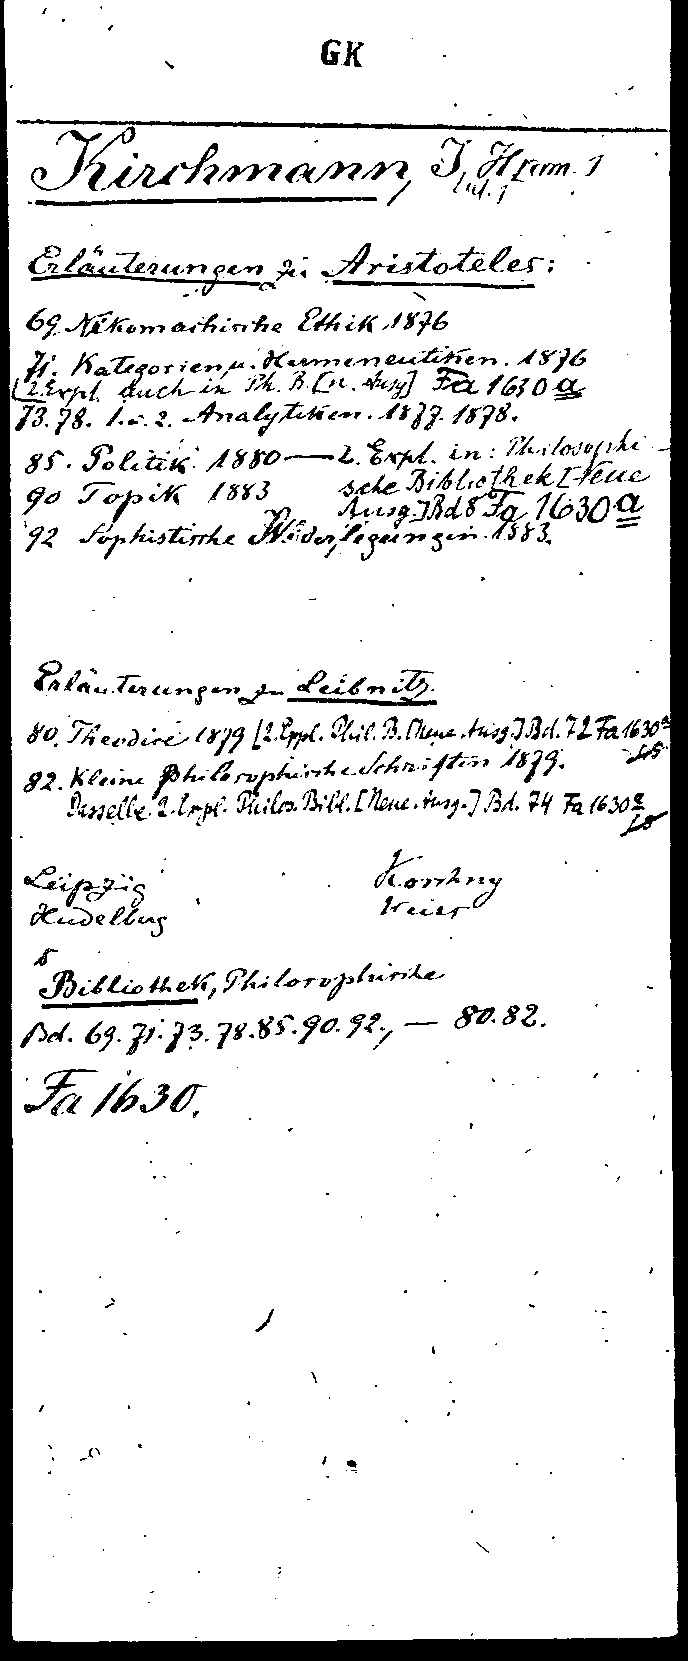 GK
Kirchmann, J. H.
Erläuterungen zu Aristoteles:
69. Nikomachische Ethik 1876
71. Kategorien u. Hermeneutiken. 1876
[2. Expl. auch in Ph. B. [n. Ausg] Fa 1630 a
73. 78. 1. u. 2. Analytiken. 1877. 1878.
85. Politik. 1880 — 2. Expl. in: Philosophi-
sche Bibliothek [Neue
90 Topik 1883
Ausg.] Bd 8 Fa 1630 a
92 Sophistische Widerlegungen. 1883.
Erläuterungen zu Leibnitz.
80. Theodice 1879 [2. Expl. Phil. B. [Neue Ausg.] Bd. 72 Fa 1630 a
82. Kleine philosophische Schriften 1879.
Dasselbe. 2. Expl. Philos. Bibl. [Neue Ausg.] Bd. 74 Fa 1630 a
Leipzig
Koschny
Heidelberg
Weiss
Bibliothek, Philosophische
Bd. 69. 71. 73. 78. 85. 90. 92., — 80. 82.
Fa 1630.